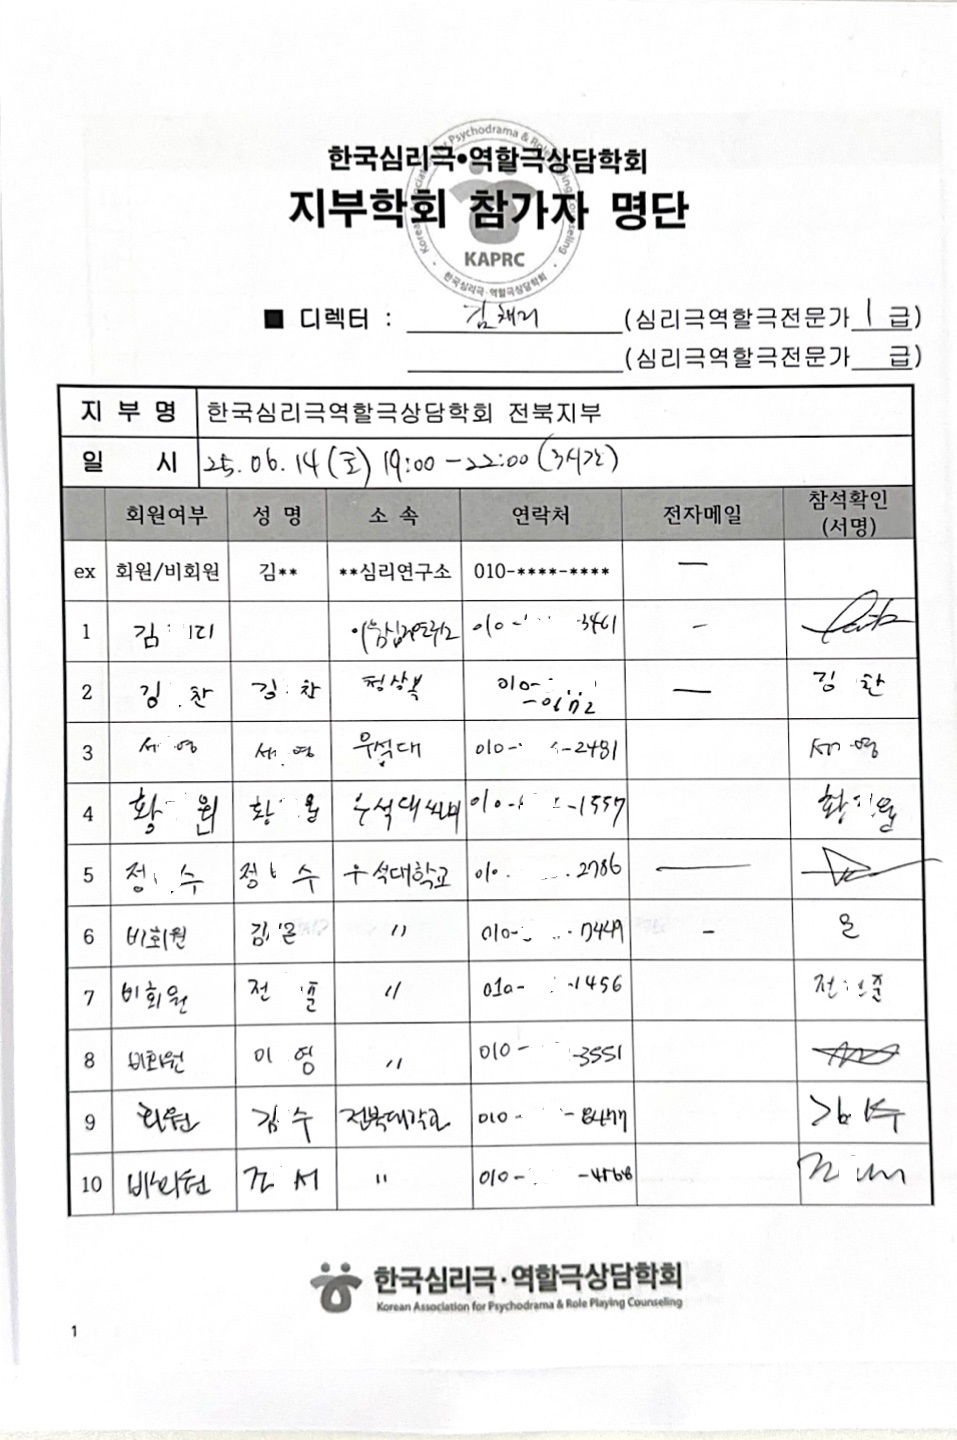 한국심리극•역할극상담학회
지부학회 참가자 명단
Korean Association for Psychodrama & Role Playing Counseling
KAPRC
한국심리극·역할극상담학회
■ 디렉터 : 김채리 (심리극역할극전문가 1 급)
(심리극역할극전문가 급)
지 부 명 한국심리극역할극상담학회 전북지부
일 시 25. 06. 14 (토) 19:00 - 22:00 (3시간)
회원여부 성 명 소 속 연락처 전자메일 참석확인 (서명)
ex 회원/비회원 김** **심리연구소 010-****-**** —
1 김 리 010- -3461 -
2 김 찬 김 찬 010- — 김 찬
3 서 영 서 영 우석대 010- -2481 서 영
4 황 원 황 원 우석대 010- -1557 황 원
5 정 수 정 수 우석대학교 010. .2786 —
6 비회원 김 은 〃 010- 7449 - 은
7 비회원 전 준 〃 010- -1456 전 준
8 비회원 이 영 〃 010- -3551
9 회원 김 수 전북대학교 010- -8477 김 수
10 비회원 조 서 〃 010- -4868
한국심리극·역할극상담학회
Korean Association for Psychodrama & Role Playing Counseling
1